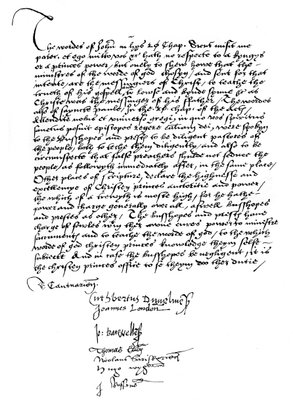 The wordes of John in hys 20 Chap. Sicut misit me
pater, et ego mitto vos &c hath no respecte to a Kynges
or a princes power, but onely to shew how that the
ministres of the worde of god chosyn, and sent for that
intente, are the messyngers of Christe, to teache the
trueth of his gospell, to louse and bynde synne &c as
Christe was the messynger of his father. The wordes
also of saynte Paule, in the 20 chap. of the Actes
Attendite vobis et universo gregi, in quo vos spiritus
sanctus posuit episcopos regere ecclesiam dei, were spoken
to the bysshopes and prestes, to be diligent pastores of
the people, both to teche them diligently, and also to be
circumspecte that false preachers shulde not seduce the
people, as followyth immediatly after, in the same place.
Other places of scripture, declare the highnesse and
excellencye of Christen princes autoritie and power,
the which of a trueth is most high, for he hathe
power and charge generally over all, as well busshopes
and prestes as other. The busshopes and prestes have
charge of soules with ther awne cures, power to minister
sacramentes, and to teache the worde of god, to the whych
worde of god christen princes knowledge them selfe
subiect. And in case the busshopes be negligent, it is
the christen princes office to se them doo ther dutie.
T. Cantuarien
Cuthbertus Dunelmen
Joannes London
Jo. Batwellen
Thomas Elien
Nicolaus Sarisburien
Hugo Wygorn
J. Roffens